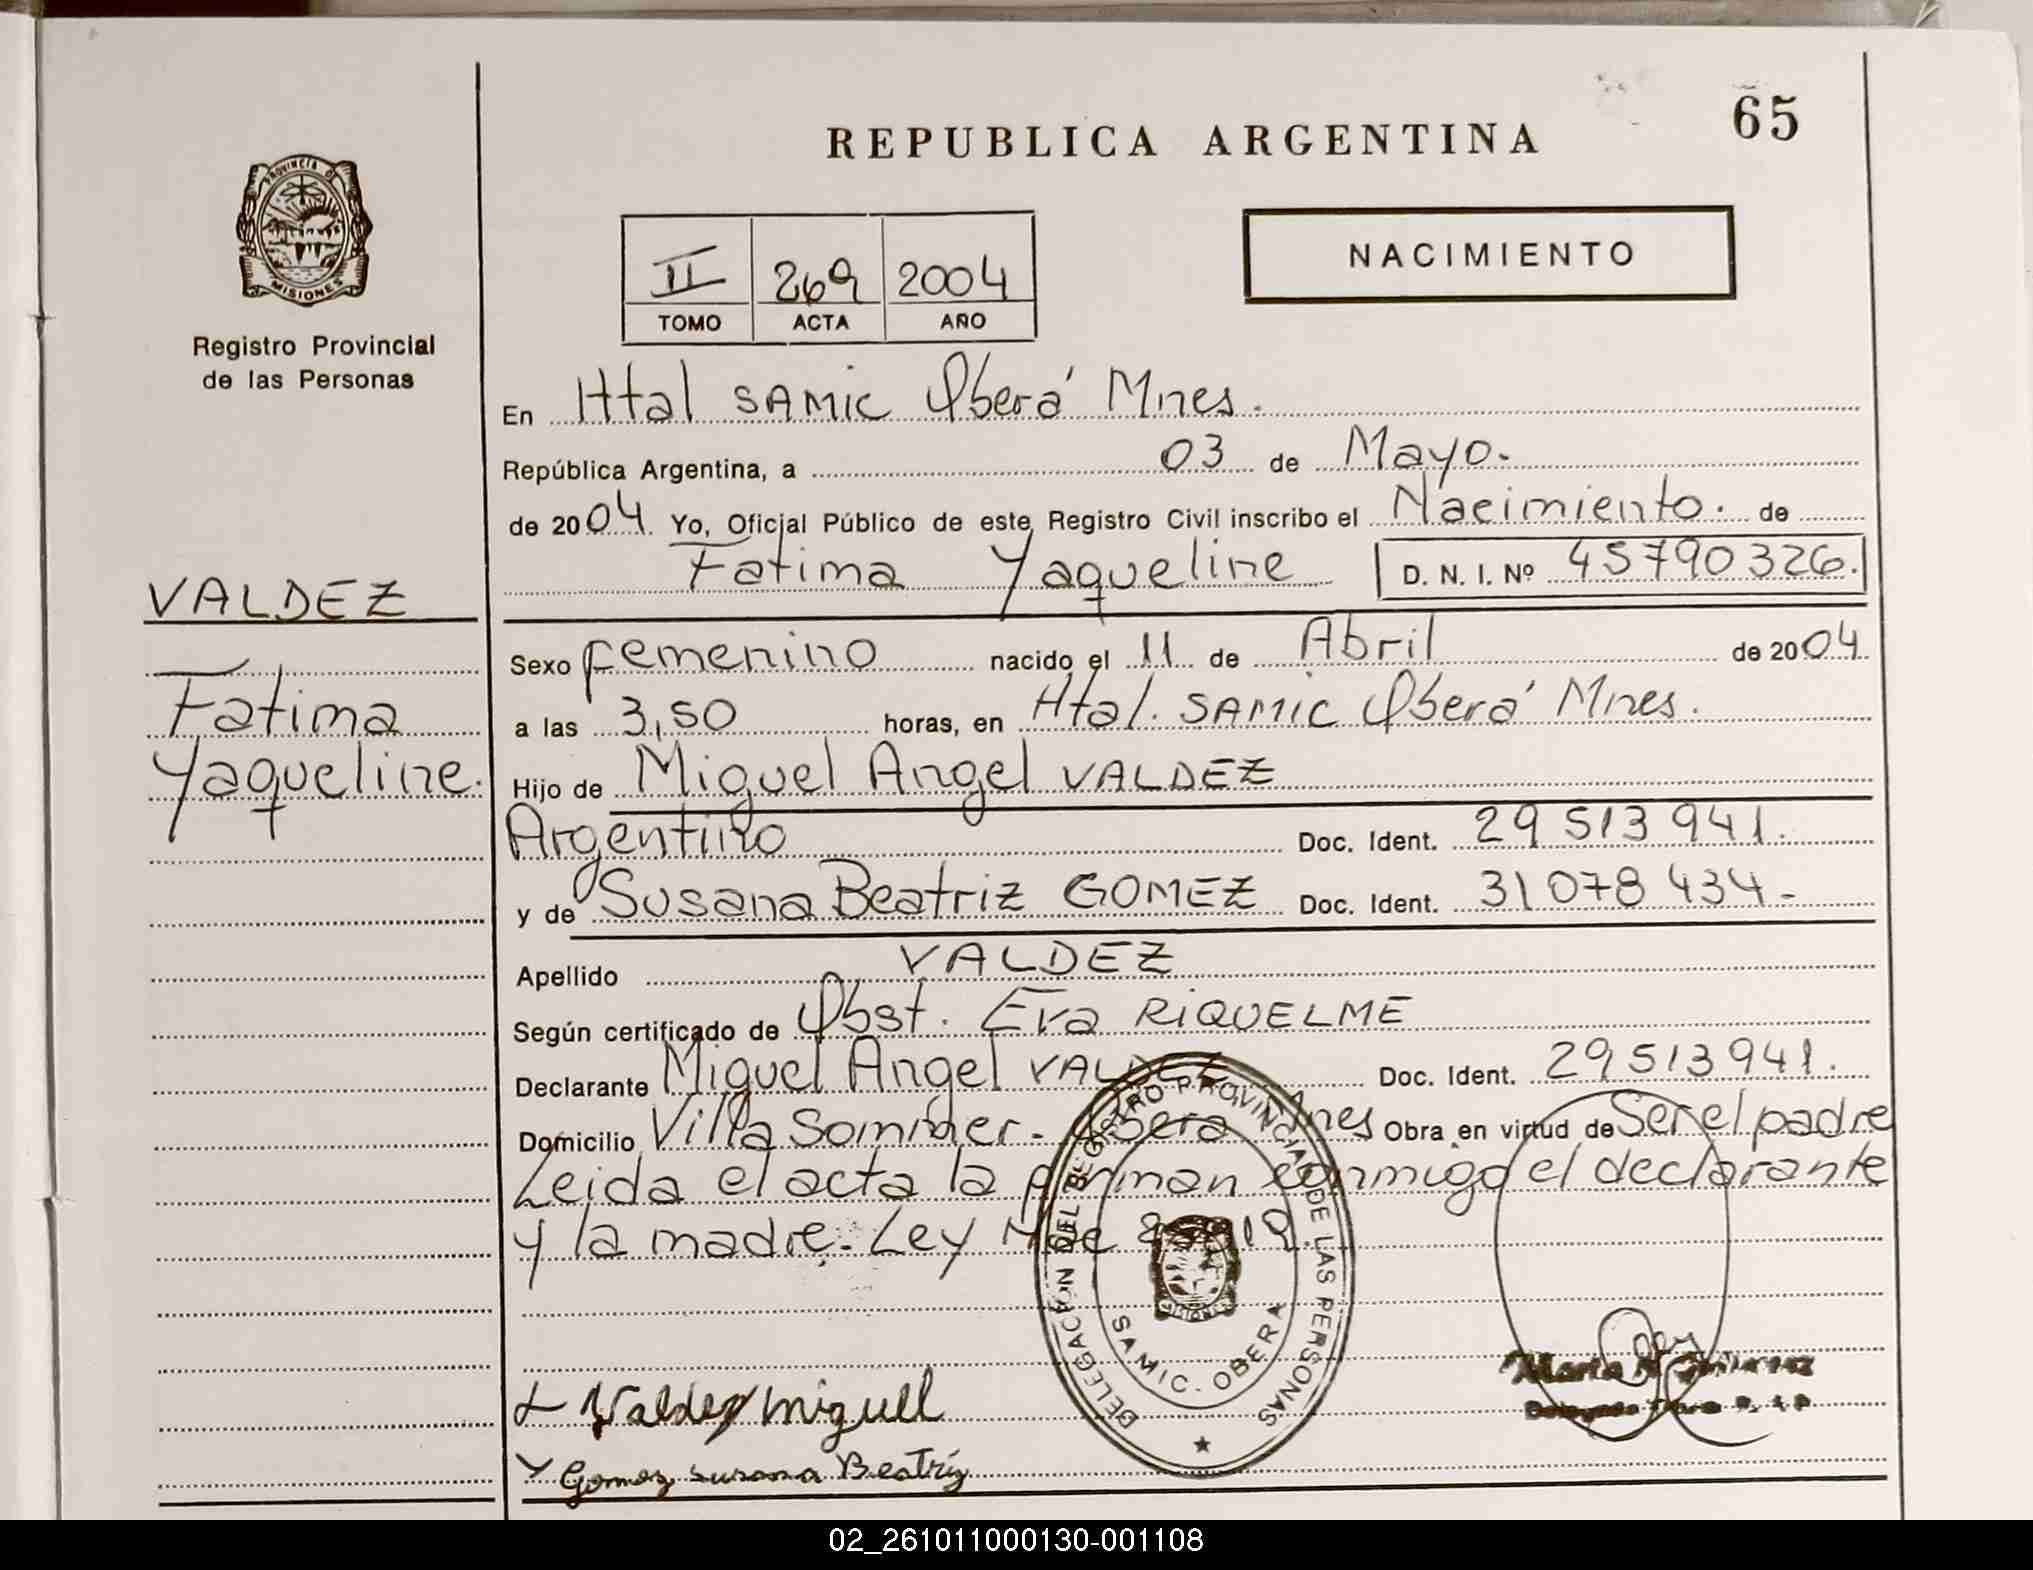 REPUBLICA ARGENTINA
65
PROVINCIA DE
MISIONES
Registro Provincial
de las Personas
II 269 2004
TOMO ACTA AÑO
NACIMIENTO
En Htal SAMIC Oberá Mnes.
República Argentina, a 03 de Mayo.
de 2004. Yo, Oficial Público de este Registro Civil inscribo el Nacimiento. de
Fatima Yaqueline D. N. I. Nº 45790326.
VALDEZ
Fatima
Yaqueline.
Sexo femenino nacido el 11 de Abril de 2004
a las 3,50 horas, en Htal. SAMIC Oberá Mnes.
Hijo de Miguel Angel VALDEZ
Argentino Doc. Ident. 29 513 941.
y de Susana Beatriz GOMEZ Doc. Ident. 31 078 434-
Apellido VALDEZ
Según certificado de Obst. Eva RIQUELME
Declarante Miguel Angel VALDEZ Doc. Ident. 29513941.
Domicilio Villa Sommer. Obera Mnes Obra en virtud de Ser el padre
Leida el acta la firman conmigo el declarante
y la madre. Ley
DELEGACIÓN DEL REGISTRO PROVINCIAL DE LAS PERSONAS
SAMIC. OBERA
Valdez Miguel
Gomez Susana Beatriz
02_261011000130-001108